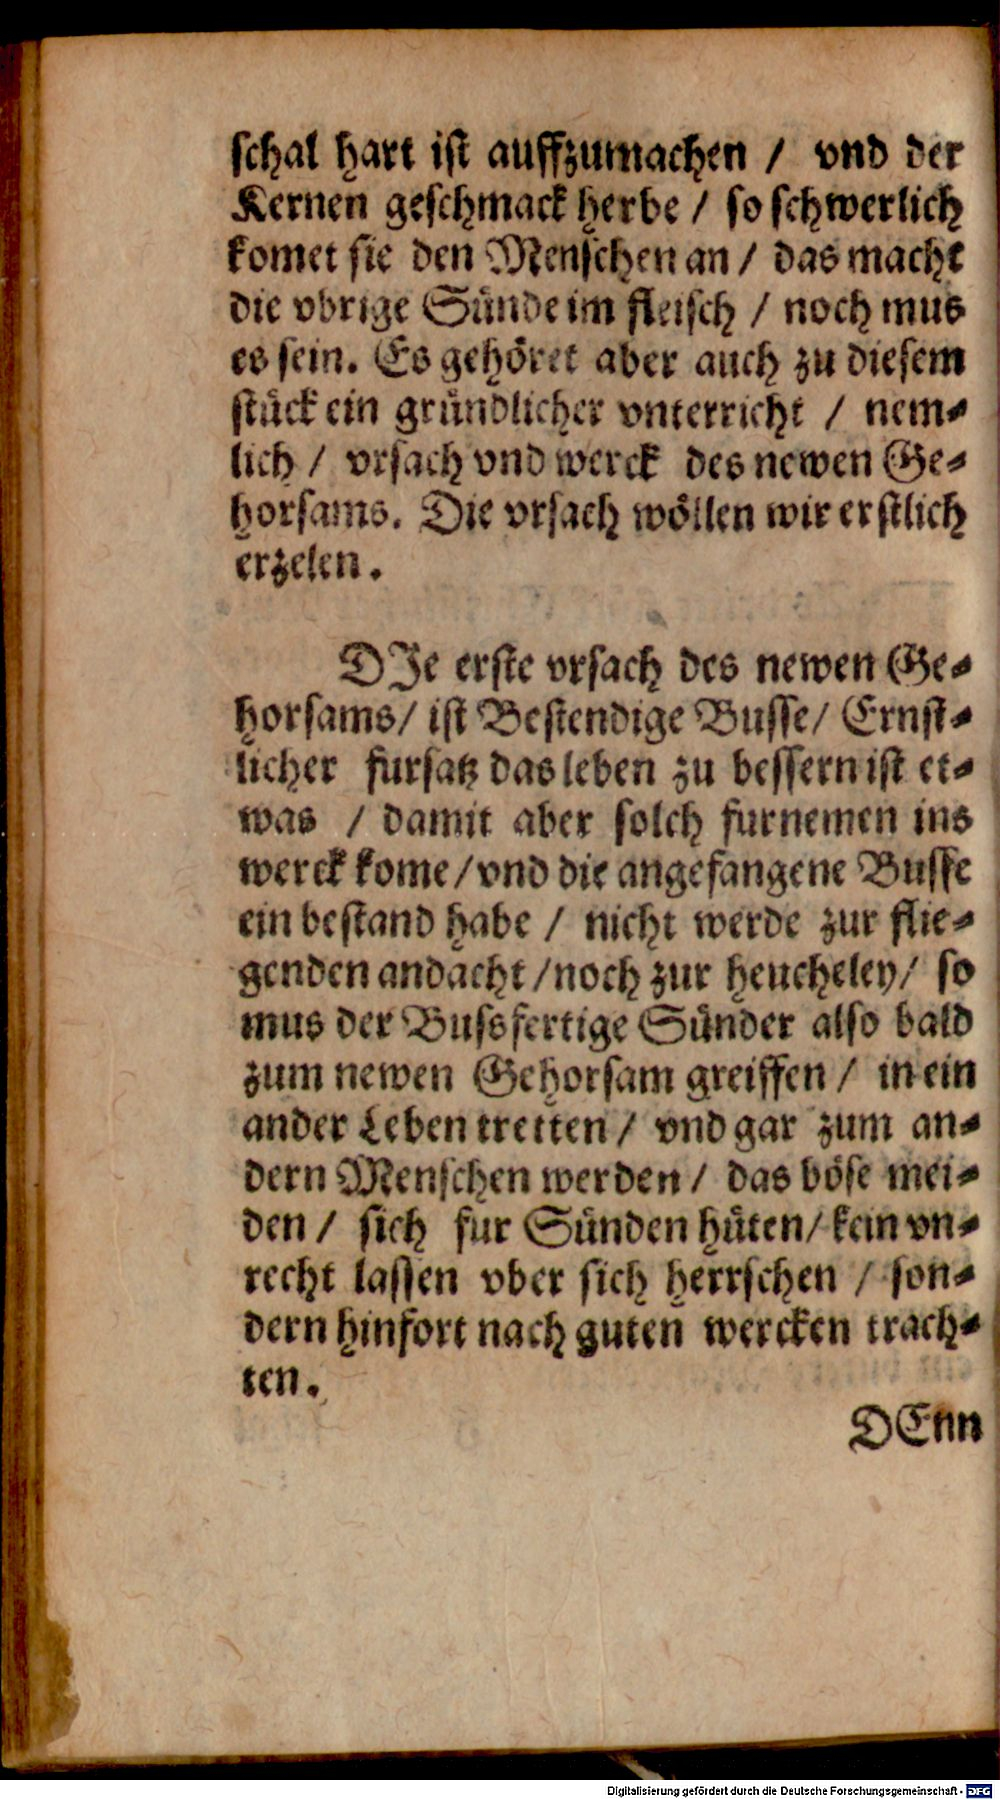 schal hart ist auffzumachen / vnd der
Kernen geschmack herbe / so schwerlich
komet sie den Menschen an / das macht
die vbrige Sünde im fleisch / noch mus
es sein. Es gehöret aber auch zu diesem
stück ein gründlicher vnterricht / nem⸗
lich / vrsach vnd werck des newen Ge⸗
horsams. Die vrsach wöllen wir erstlich
erzelen.
DIe erste vrsach des newen Ge⸗
horsams/ ist Bestendige Busse/ Ernst⸗
licher fursatz das leben zu bessern ist et⸗
was / damit aber solch furnemen ins
werck kome/vnd die angefangene Busse
ein bestand habe / nicht werde zur flie⸗
genden andacht /noch zur heucheley/ so
mus der Bussfertige Sünder also bald
zum newen Gehorsam greiffen / in ein
ander Leben tretten / vnd gar zum an⸗
dern Menschen werden / das böse mei⸗
den / sich fur Sünden hüten/ kein vn⸗
recht lassen vber sich herrschen / son⸗
dern hinfort nach guten wercken trach⸗
ten.
DEnn
Digitalisierung gefördert durch die Deutsche Forschungsgemeinschaft - DFG